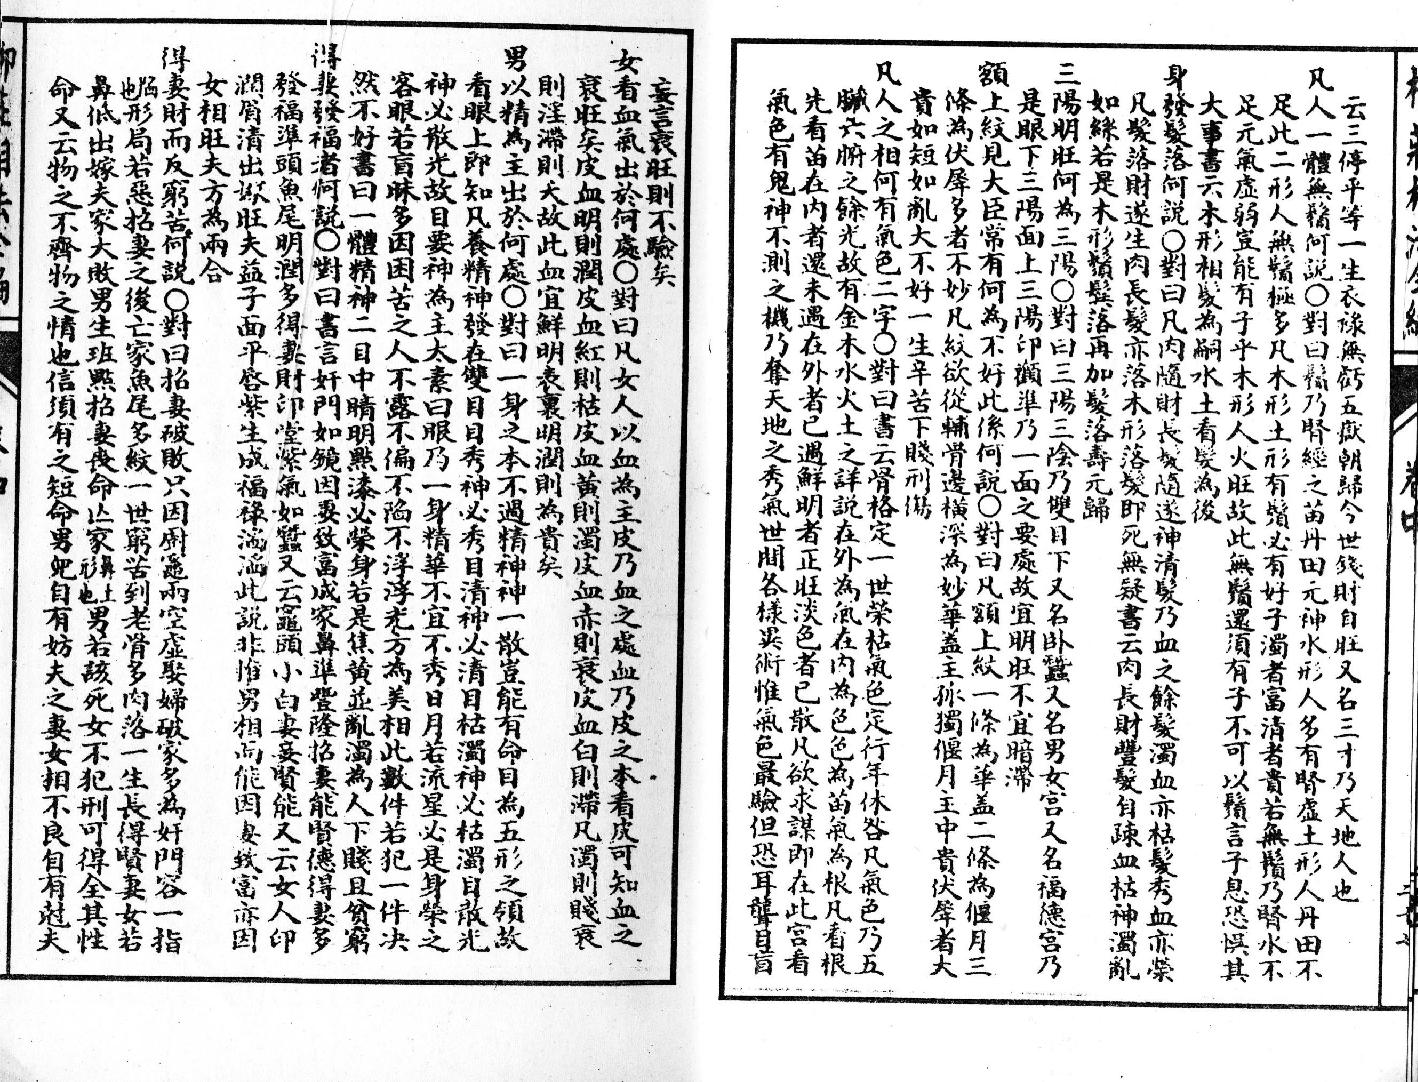 柳莊相法全編
卷中
云三停平等一生衣祿無虧五嶽朝歸今世錢財自旺又名三才乃天地人也
凡人一體無鬚何說〇對曰鬚乃腎經之苗丹田元神水形人多有腎虛土形人丹田不
足此二形人無鬚極多凡木形土形有鬚必有好子濁者富清者貴若無鬚乃腎水不
足元氣虛弱豈能有子乎木形人火旺故此無鬚還須有子不可以鬚言子息恐悞其
大事書云木形相髮為嗣水土看髮為後
身發髮落何說〇對曰凡肉隨財長髮隨遂神清髮乃血之餘髮濁血亦枯髮秀血亦榮
凡髮落財遂生肉長髮亦落木形落髮即死無疑書云肉長財豐髮自疎血枯神濁亂
如絲若是木形鬚髮落再加髮落壽元歸
三陽明旺何為三陽〇對曰三陽三陰乃雙目下又名卧蠶又名男女宮又名福德宮乃
是眼下三陽面上三陽印顴準乃一面之要處故宜明旺不宜暗滯
額上紋見大臣常有何為不好此係何說〇對曰凡額上紋一條為華蓋二條為偃月三
條為伏犀多者不妙凡紋欲從輔骨邊橫深為妙華蓋主孤獨偃月主中貴伏犀者大
貴如短如亂大不好一生辛苦下賤刑傷
凡人之相何有氣色二字〇對曰書云骨格定一世榮枯氣色定行年休咎凡氣色乃五
臟六腑之餘光故有金木水火土之詳説在外為氣在內為色色為苗氣為根凡看根
先看苗在內者還未遇在外者已遇鮮明者正旺淡色者已散凡欲求謀即在此宮看
氣色有鬼神不測之機乃奪天地之秀氣世間各樣異術惟氣色最驗但恐耳聾目盲
妄言衰旺則不驗矣
女看血氣出於何處〇對曰凡女人以血為主皮乃血之處血乃皮之本看皮可知血之
衰旺矣皮血明則潤皮血紅則枯皮血黃則濁皮血赤則衰皮血白則滯凡濁則賤衰
則淫滯則夭故此血宜鮮明表裏明潤則為貴矣
男以精為主出於何處〇對曰一身之本不過精神神一散豈能有命目為五形之領故
看眼上即知凡養精神發在雙目目秀神必秀目清神必清目枯濁神必枯濁目散光
神必散光故目要神為主太素曰眼乃一身精華不宜不秀日月若流星必是身榮之
客眼若盲昧多因困苦之人不露不偏不陷不浮浮光方為美相此數件若犯一件決
然不好書曰一體精神二目中睛明點漆必榮身若是焦黃並亂濁為人下賤且貧窮
得妻發福者何說〇對曰書言奸門如鏡因妻致富成家鼻準豐隆招妻能賢德得妻多
發福準頭魚尾明潤多得妻財印堂紫氣如蠶又云竈頭小白妻妾賢能又云女人印
潤唇清出嫁旺夫益子面平唇紫生成福祿滔滔此說非惟男相尚能因妻致富亦因
女相旺夫方為兩合
得妻財而反窮苦何説〇對曰招妻破敗只因厨竈兩空虛娶婦破家多為奸門容一指
陷也形局若惡招妻之後亡家魚尾多紋一世窮苦到老骨多肉落一生長得賢妻女若
鼻低出嫁夫家大敗男生班點招妻喪命亡家鼻上形也男若該死女不犯刑可得全其性
命又云物之不齊物之情也信須有之短命男兒自有妨夫之妻女相不良自有尅夫